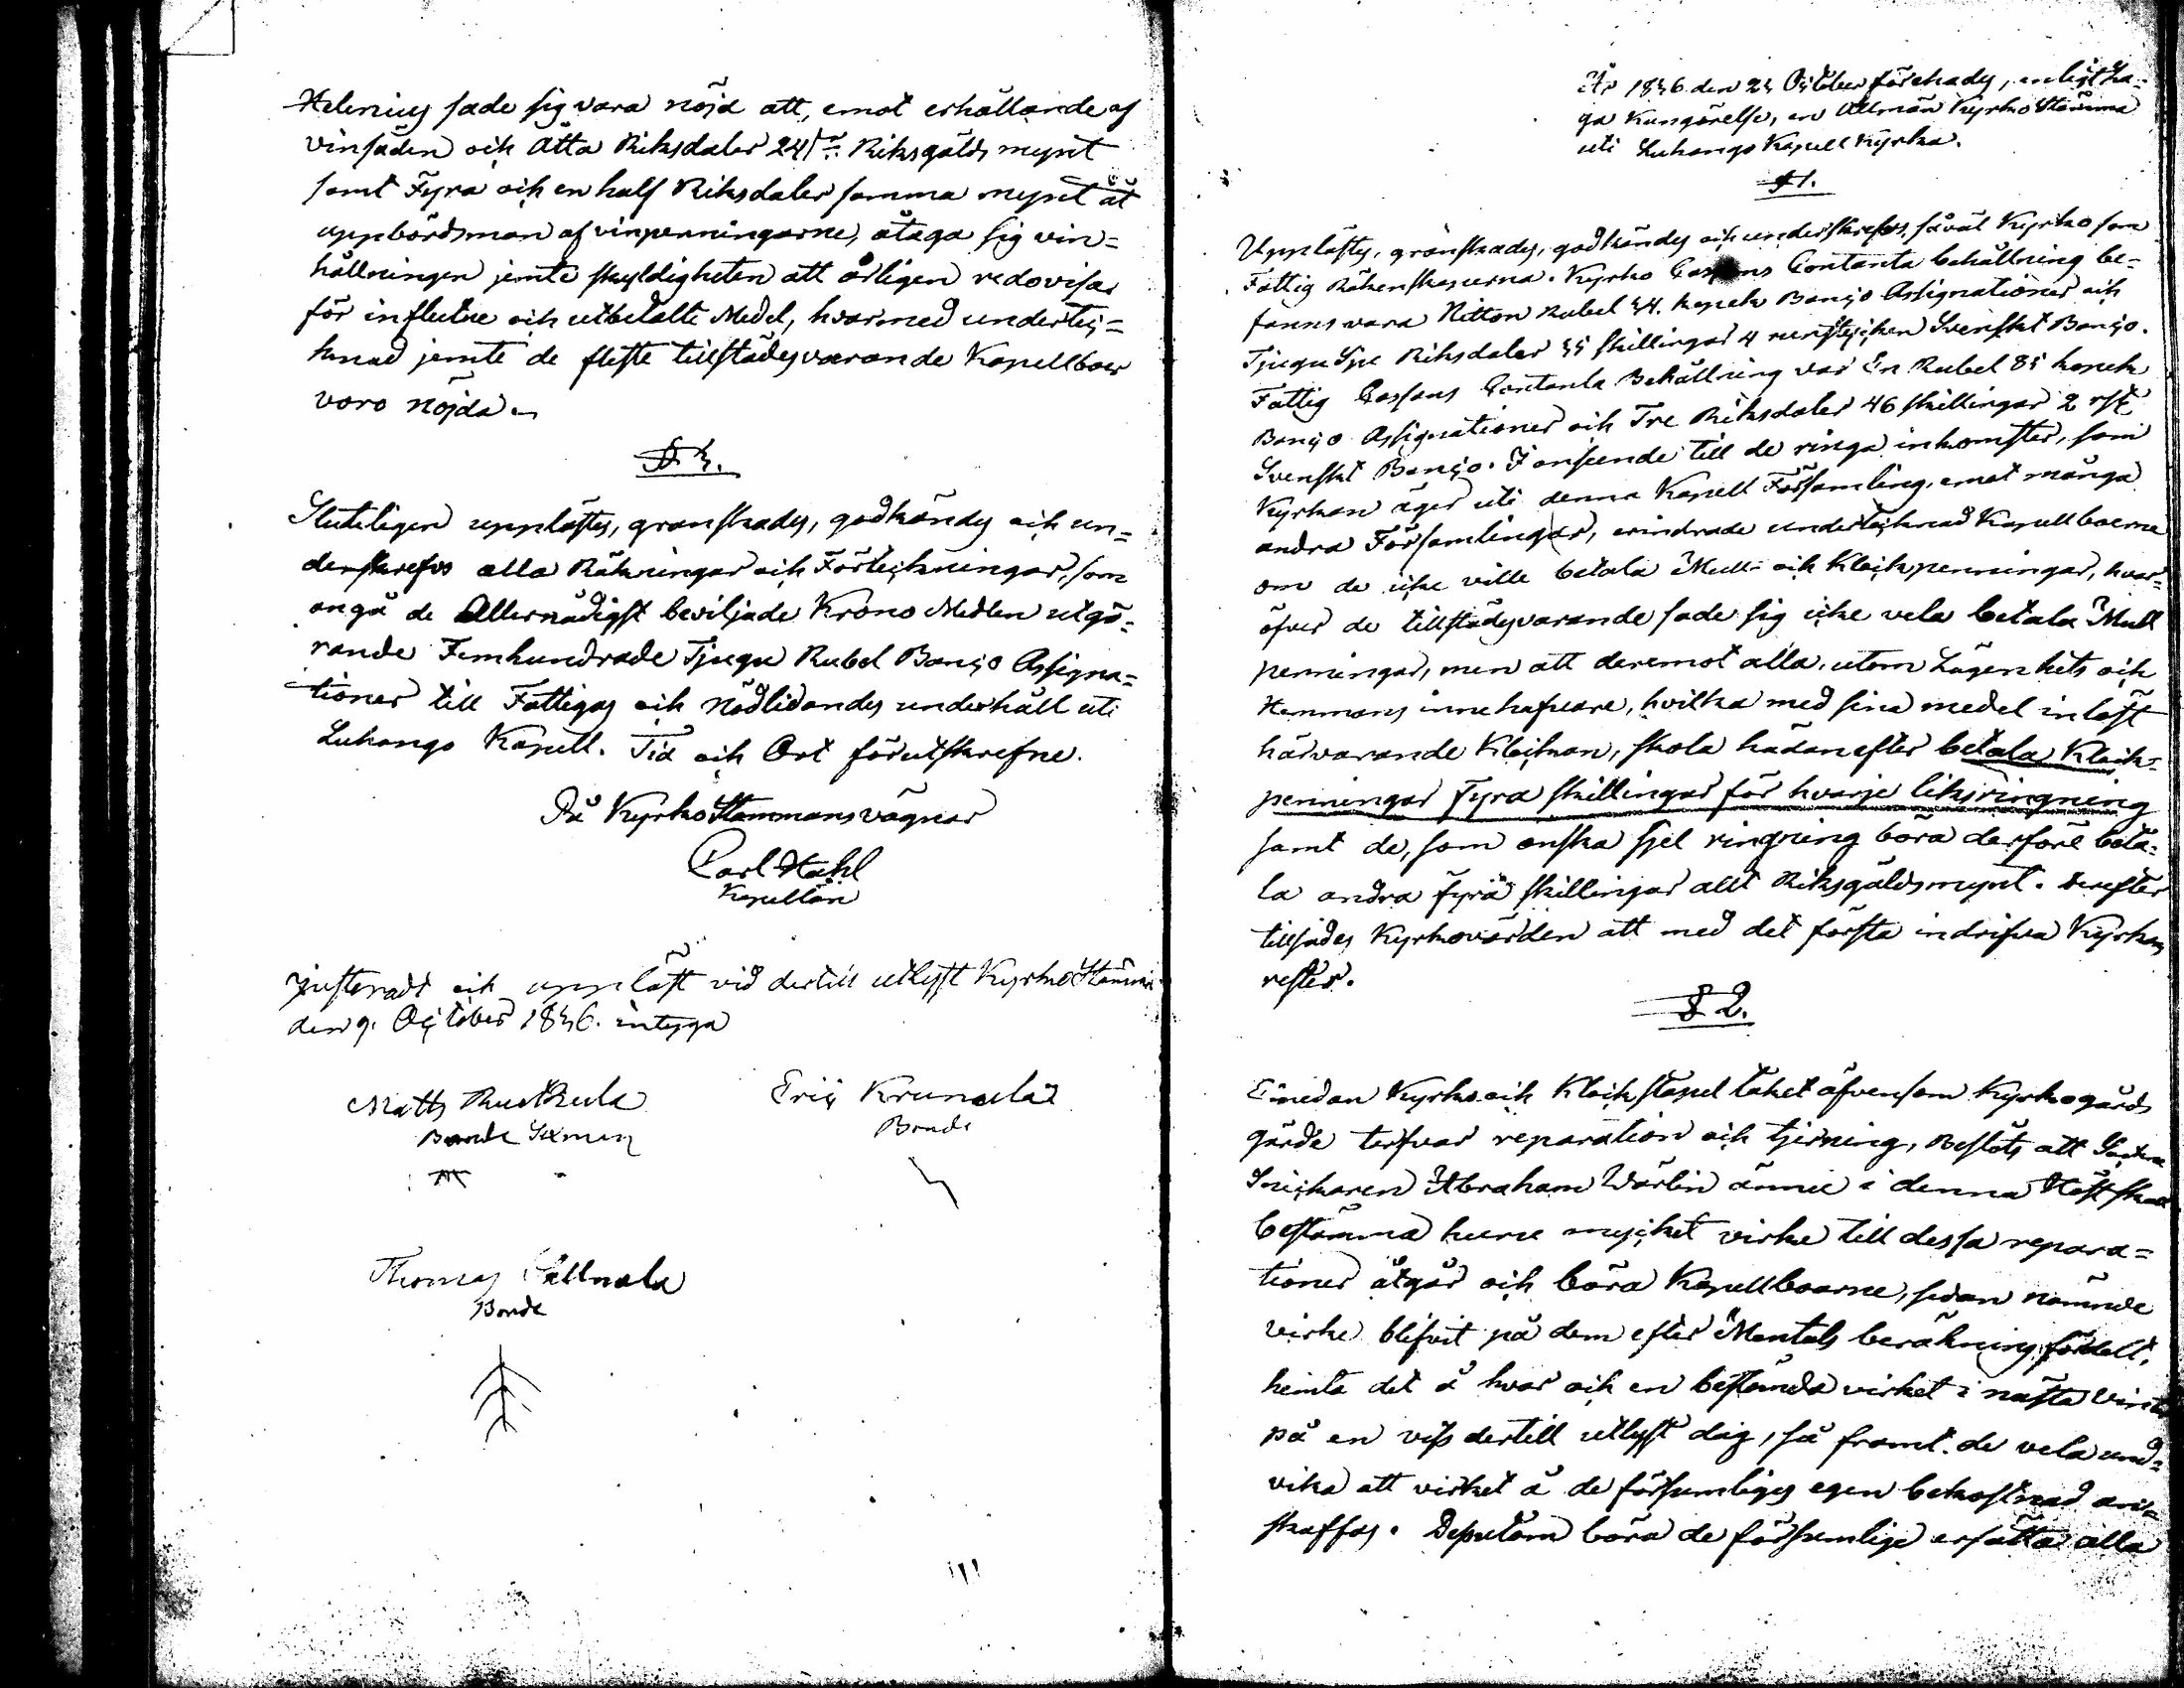 Helenius sade sig vara nöjd att, emot erhållande af
vinsäden och Åtta Riksdaler 24 s. Riksgälds mynt
samt Fyra och en half Riksdaler samma mynt åt
uppbördsman af vinpenningarne, åtaga sig vin=
hållningen jemte skyldigheten att årligen redovisa
för influtne och utbetalte Medel, hvarmed underteck=
knad jemte de fleste tillstädesvarande Kapellboer
voro nöjda.
§ 3.
Sluteligen upplästes, granskades, godkändes och un=
derskrefvos alla Räkningar och Förteckningar, som
angå de Allernådigst beviljade Krono Medlen utgö=
rande Femhundrade Tjugu Rubel Banco Assigna=
tioner till Fattigas och Nödlidandes underhåll uti
Luhango Kapell. Tid och Ort förutskrefne.
På KyrkoStämmans vägnar
Carl Stahl
Kapellan
Justeradt och uppläst vid dertill utlyst KyrkoStämma
den 9. October 1836. intyga
Matts Ruokula
Bonde Sexman
Eric Krunula
Bonde
Thomas
Bonde
År 1836 den 23 October förehades, enligt La=
ga Kungörelse, en Allmän KyrkoStämma
uti Luhango Kapell Kyrka.
§ 1.
Upplästes, granskades, godkändes och underskrefvos, såväl Kyrko som
Fattig Räkenskaperna. Kyrko Cassans Contanta behållning be=
fanns vara Nitton Rubel 34. kopek Banco Assignationer och
Tjugu Sju Riksdaler 35 skillingar 4 runstycken Svenskt Banco.
Fattig Cassans Contanta Behållning var En Rubel 85 kopek
Banco Assignationer och Tre Riksdaler 46 skillingar 2 rst
Svenskt Banco. I anseende till de ringa inkomster, som
Kyrkan äger uti denna Kapell Församling, emot många
andra Församlingar, erindrade undertecknad Kapellboerne
om de icke ville betala Mull= och Klockpenningar, hvar=
öfver de tillstädesvarande sade sig icke vela betala Mull
penningar, men att deremot alla, utom Lägenhets och
Hemmans innehafvare, hvilka med sina medel inlöst
härvarande Klockan, skola hädanefter betala Klock=
penningar Fyra skillingar för hvarje liksringning
samt de, som önska sjel ringning böra derföre beta=
la andra fyra skillingar allt Riksgäldsmynt. Derefter
tillsades Kyrkovärden att med det första indrifva Kyrkans
rester.
§ 2.
Emedan Kyrko och Klockstapel taket äfvensom Kyrkogårds
gärde tarfvar reparation och tjärning, Beslöts att
Snickaren Abraham Wärlin ännu i denna Höst skall
bestämma huru mycket virke till dessa repara=
tioner åtgår och böra Kapellboarne, sedan nämnde
virke blifvit på dem efter Mantals beräkning fördelt,
hemta det å hvar och en bestämda virket i nästa Vinter
på en viss dertill utlyst dag, så framt de vela und=
vika att virket å de försumliges egen bekostnad an=
skaffas. Dessutom böra de försumlige ersätta alla